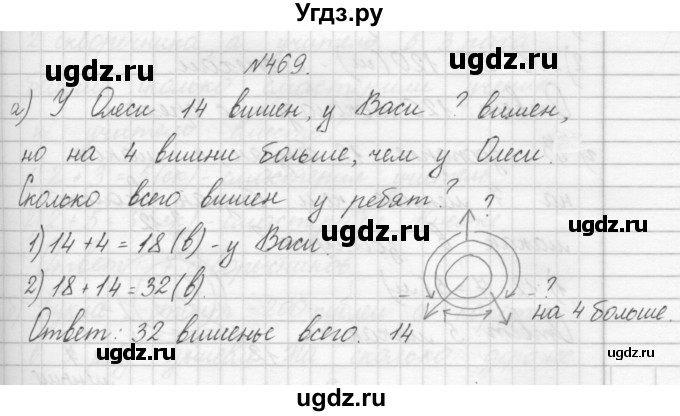 Угдз.ру
№469.
а) У Олеси 14 вишен, у Васи ? вишен,
но на 4 вишни больше, чем у Олеси.
Сколько всего вишен у ребят?
?
1) 14 + 4 = 18 (в) - у Васи.
2) 18 + 14 = 32 (в).
- ?
на 4 больше.
Ответ: 32 вишенье всего.
14
ugdz.ru
ugdz.ru
ugdz.ru
ugdz.ru
ugdz.ru
ugdz.ru
ugdz.ru
ugdz.ru
ugdz.ru